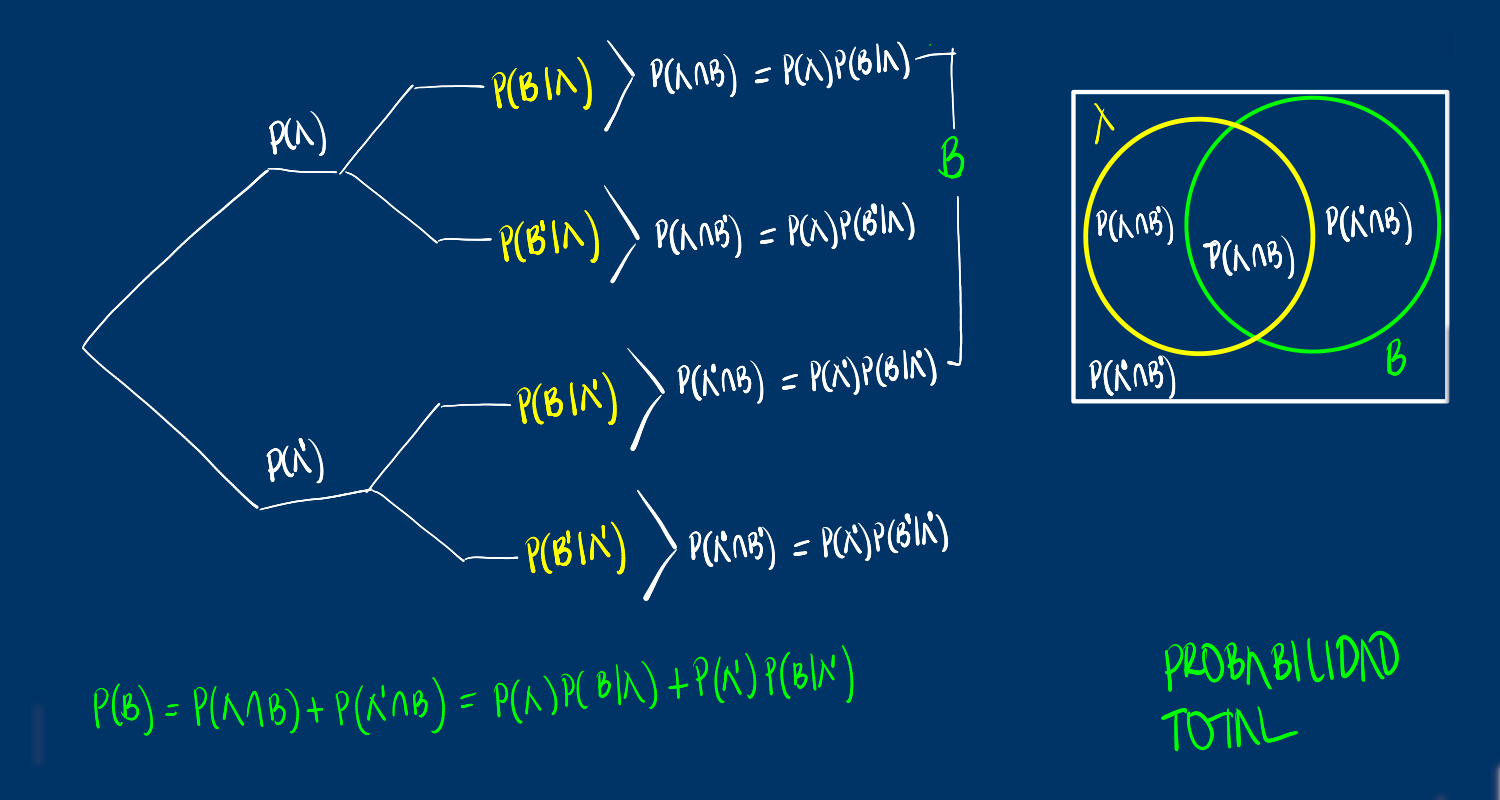 P(A)
P(B|A) P(A∩B) = P(A)P(B|A)
B
P(B'|A) P(A∩B') = P(A)P(B'|A)
P(A')
P(B|A') P(A'∩B) = P(A')P(B|A')
P(B'|A') P(A'∩B') = P(A')P(B'|A')
A
P(A∩B')
P(A∩B)
P(A'∩B)
B
P(A'∩B')
P(B) = P(A∩B) + P(A'∩B) = P(A)P(B|A) + P(A')P(B|A')
PROBABILIDAD
TOTAL